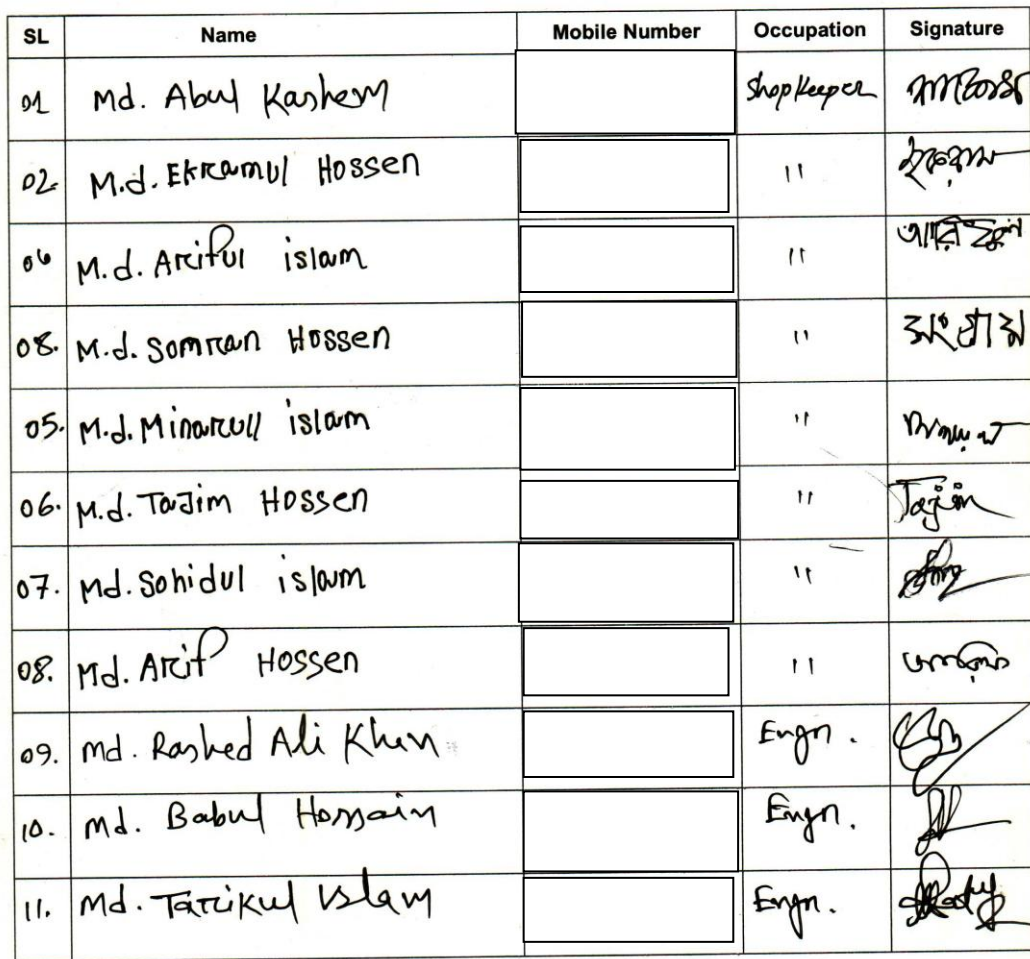 SL Name Mobile Number Occupation Signature
01 Md. Abul Kashem ShopKeeper
02. M.d. Ekramul Hossen " ইকরামুল
06 M.d. Ariful islam " আরিফুল
08. M.d. Somran Hossen "
05. M.d. Minarull islam "
06. M.d. Tajim Hossen " Tajim
07. Md. Sohidul islam "
08. Md. Arif Hossen "
09. Md. Rashed Ali Khan Engn.
10. Md. Babul Hossain Engn.
11. Md. Tarikul Islam Engn.